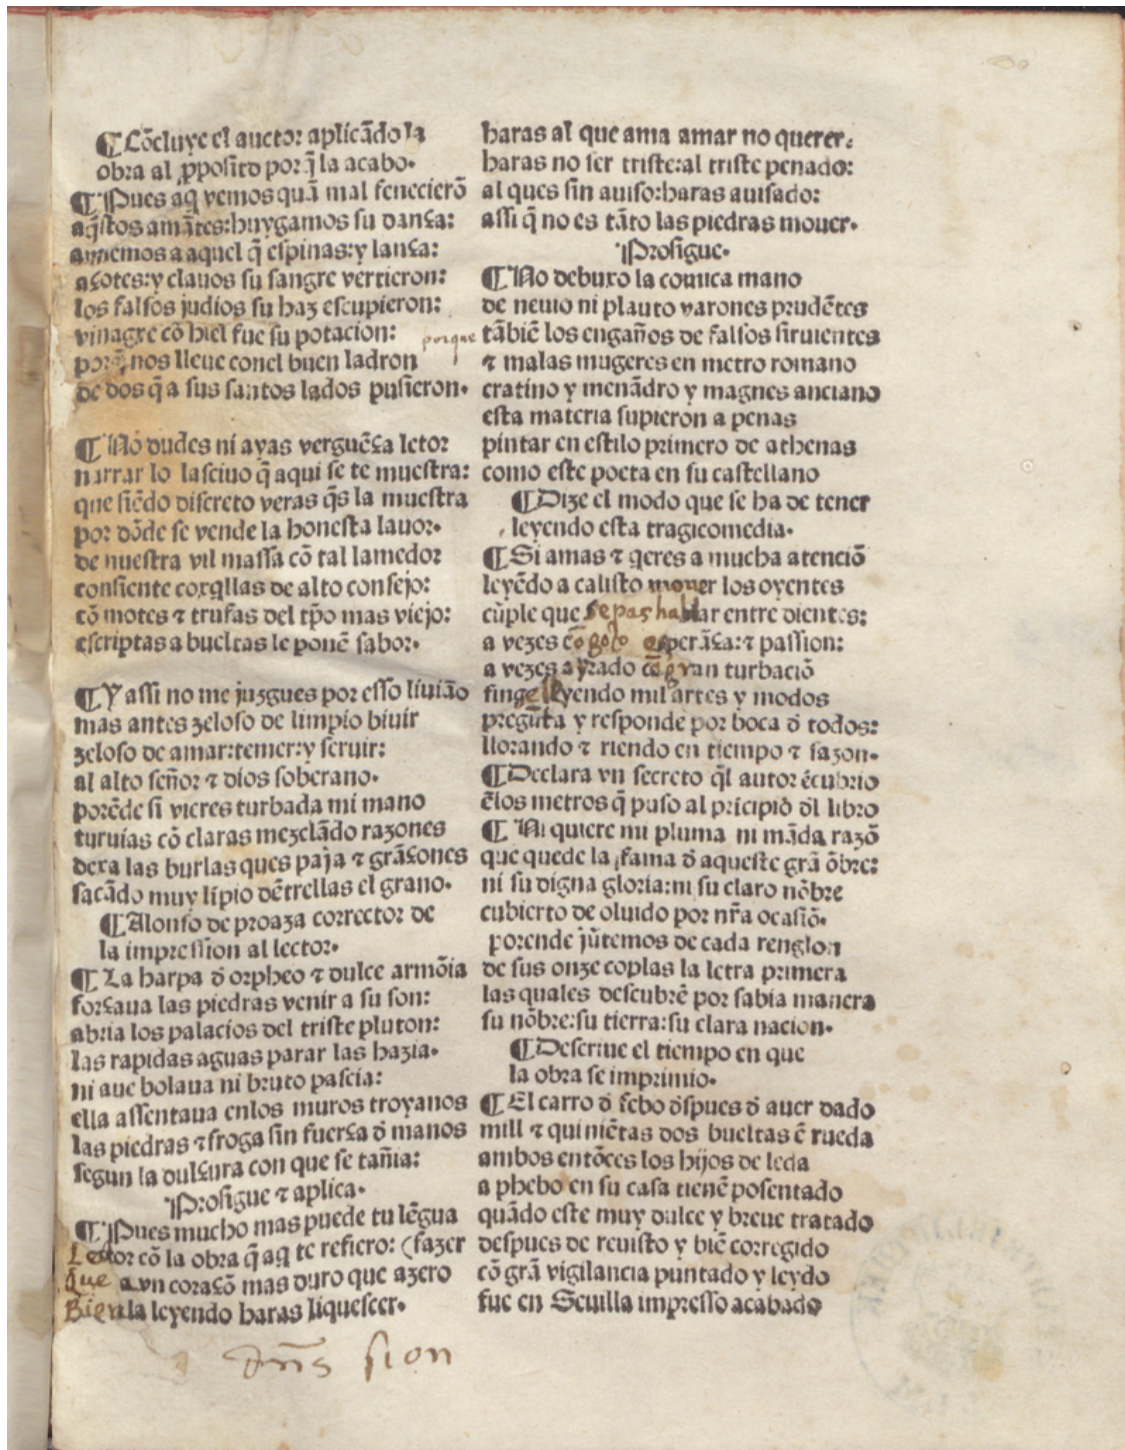 ¶ Cōcluye el auctor aplicādo la
obra al ꝓposito por q̄ la acabo.
¶ Pues aq̄ vemos quā mal fenecierō
aq̄stos amātes: huygamos su dança:
amemos a aquel q̄ espinas: y lança:
açotes: y clauos su sangre vertieron:
los falsos judios su haz escupieron:
vinagre cō hiel fue su potacion:
porq̄ nos lleue conel buen ladron
porque
de dos q̄ a sus santos lados pusieron.
¶ No dudes ni ayas verguēça letor
narrar lo lasciuo q̄ aqui se te muestra:
que siēdo discreto veras q̄s la muestra
por dōde se vende la honesta lauor.
de nuestra vil massa cō tal lamedor
consiente coxq̄llas de alto consejo:
cō motes ⁊ trufas del tp̄o mas viejo:
escriptas a bueltas le ponē sabor.
¶ Y assi no me juzgues por esso liuiāo
mas antes zeloso de limpio biuir
zeloso de amar: temer: y seruir:
al alto señor ⁊ dios soberano.
porēde si vieres turbada mi mano
turuias cō claras mezclādo razones
dexa las burlas ques paja ⁊ grāçones
sacādo muy lipio dētrellas el grano.
¶ Alonso de proaza corrector de
la impression al lector.
¶ La harpa đ orpheo ⁊ dulce armōia
forçaua las piedras venir a su son:
abria los palacios del triste pluton:
las rapidas aguas parar las hazia.
ni aue bolaua ni bruto pascia:
ella assentaua enlos muros troyanos
las piedras ⁊ froga sin fuerça đ manos
segun la dulçura con que se tañia:
Prosigue ⁊ aplica.
¶ Pues mucho mas puede tu lēgua
Lector cō la obra q̄ aq̄ te refiero: (fazer
que a vn coraçō mas duro que azero
Bien la leyendo haras liquescer.
haras al que ama amar no querer:
haras no ser triste: al triste penado:
al ques sin auiso: haras auisado:
assi q̄ no es tāto las piedras mouer.
Prosigue.
¶ No debuxo la comica mano
de neuio ni plauto varones prudētes
tābiē los engaños de falsos siruientes
⁊ malas mugeres en metro romano
cratino y menādro y magnes anciano
esta materia supieron a penas
pintar en estilo primero de athenas
como este poeta en su castellano
¶ Dize el modo que se ha de tener
leyendo esta tragicomedia.
¶ Si amas ⁊ q̄res a mucha atenciō
leyēdo a calisto mouer los oyentes
cūple que sepas hablar entre dientes:
a vezes cō gozo esperāça: ⁊ passion:
a vezes ayrado cō gran turbaciō
finge leyendo mil artes y modos
pregūta y responde por boca đ todos:
llorando ⁊ riendo en tiempo ⁊ sazon.
¶ Declara vn secreto q̄l autor ēcubrio
ēlos metros q̄ puso al pricipio đl libro
¶ Ni quiere mi pluma ni māda razō
que quede la fama đ aqueste grā ōbre:
ni su digna gloria: ni su claro nōbre
cubierto de oluido por nr̄a ocasiō.
porende jūtemos de cada renglon
de sus onze coplas la letra primera
las quales descubrē por sabia manera
su nōbre: su tierra: su clara nacion.
¶ Descriue el tiempo en que
la obra se imprimio.
¶ El carro đ febo đspues đ auer dado
mill ⁊ quiniētas dos bueltas ē rueda
ambos entōces los hijos de leda
a phebo en su casa tienē posentado
quādo este muy dulce y breue tratado
despues de reuisto y biē corregido
cō grā vigilancia puntado y leydo
fue en Seuilla impresso acabado
sion